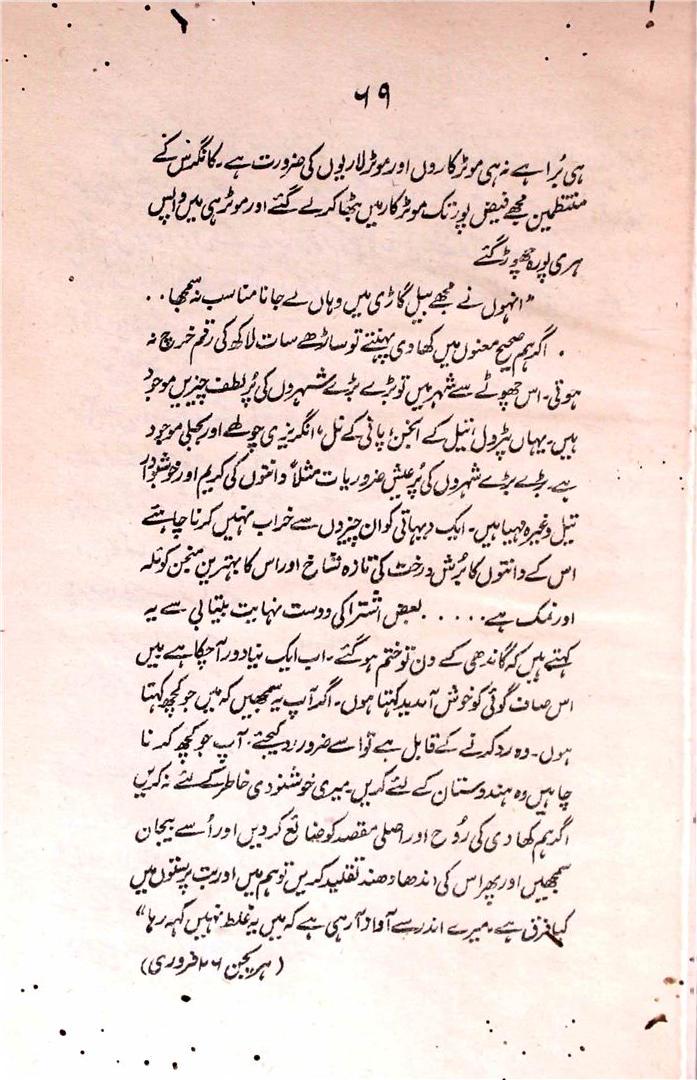 ۶۹
ہی بُرا ہے نہ ہی موٹر کاروں اور موٹر لاریوں کی ضرورت ہے۔ کانگرس کے
منتظمین مجھے فیض پور تک موٹر کار میں بٹھا کر لے گئے اور موٹر ہی میں واپس
ہری پورہ چھوڑ گئے
"انہوں نے مجھے بیل گاڑی میں وہاں لے جانا مناسب نہ سمجھا . .
. اگر ہم صحیح معنوں میں کھادی پہنتے تو ساڑھے سات لاکھ کی رقم خرچ نہ
ہوتی۔ اس چھوٹے سے شہر میں تو بڑے بڑے شہروں کی پُر لطف چیزیں موجود
ہیں۔ یہاں پٹرول، تیل کے انجن، پانی کے نل، انگریزی چولھے اور بجلی موجود
ہے۔ بڑے بڑے شہروں کی پُر عیش ضروریات مثلاً دانتوں کی کریم اور خوشبودار
تیل وغیرہ مہیا ہیں۔ ایک دیہاتی کو ان چیزوں سے خراب نہیں کرنا چاہئے
اس کے دانتوں کا برُش درخت کی تازہ شاخ اور اس کا بہترین منجن کوئلہ
اور نمک ہے . . . . . بعض اشتراکی دوست نہایت بیتابی سے یہ
کہتے ہیں کہ گاندھی کے دن تو ختم ہو گئے۔ اب ایک نیا دور آ چکا ہے میں
اس صاف گوئی کو خوش آمدید کہتا ہوں۔ اگر آپ یہ سمجھیں کہ میں جو کچھ کہتا
ہوں۔ وہ رد کرنے کے قابل ہے تو اسے ضرور رد کیجئے۔ آپ جو کچھ کرنا
چاہیں وہ ہندوستان کے لئے کریں۔ میری خوشنودی خاطر کے لئے نہ کریں
اگر ہم کھادی کی رُوح اور اصلی مقصد کو ضائع کر دیں اور اُسے بیجان
سمجھیں اور پھر اس کی اندھا دھند تقلید کریں تو ہم میں اور بت پرستوں میں
کیا فرق ہے۔ میرے اندر سے آواز آ رہی ہے کہ میں یہ غلط نہیں کہہ رہا"
(ہریجن ۲۶ فروری)